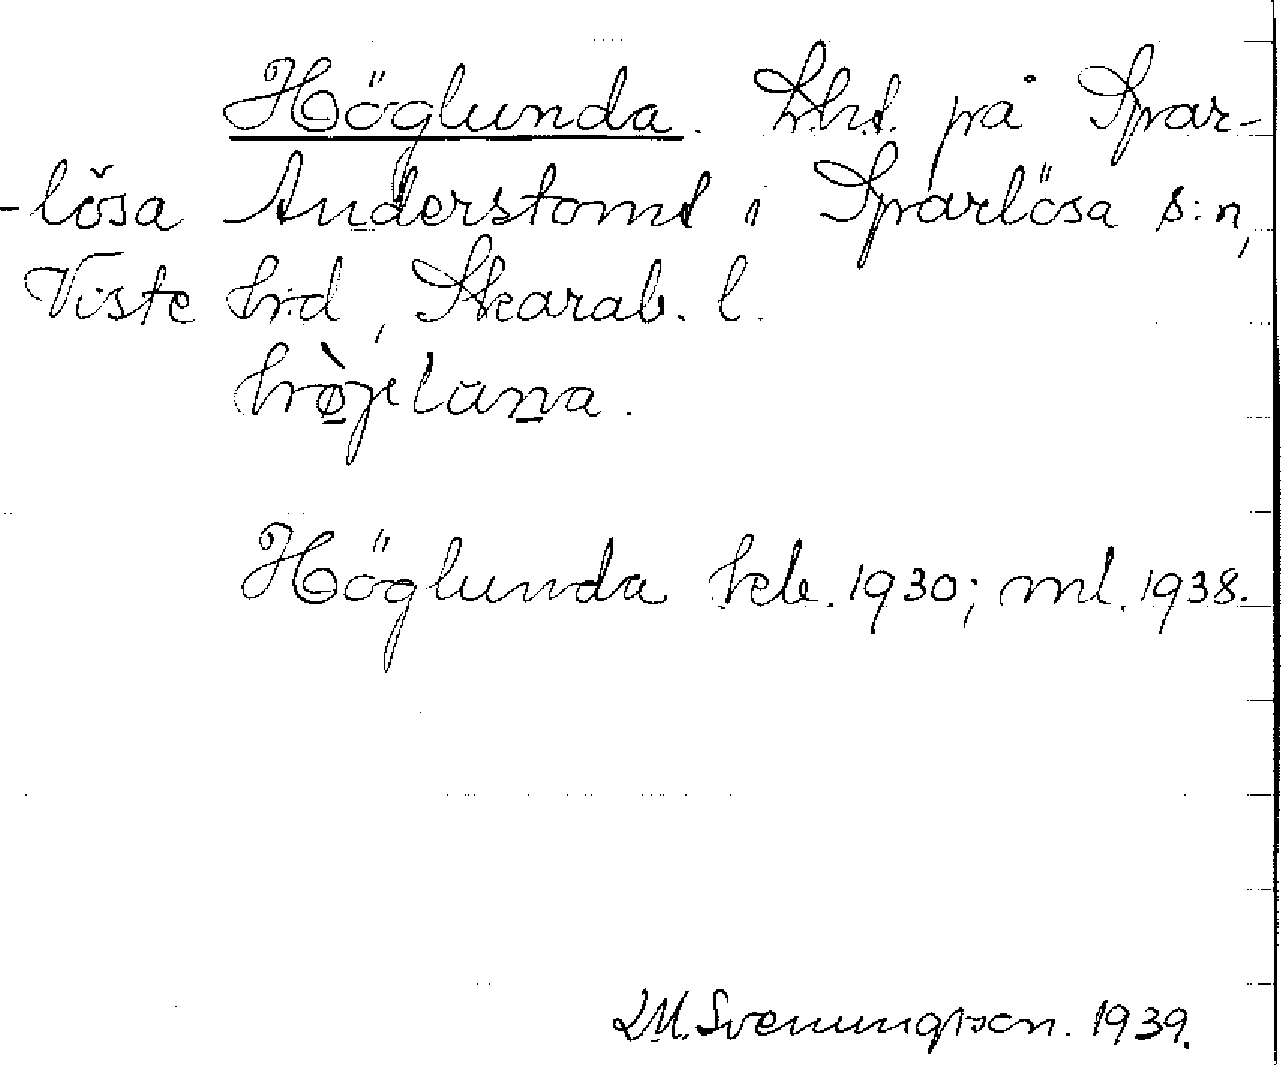 Höglunda. Lht. på Spar-
-lösa Anderstomt i Sparlösa s:n,
Viste hrd, Skarab. l.
hø̀jelana.
Höglunda keb. 1930; ml. 1938.
LM. Svenungsson. 1939.